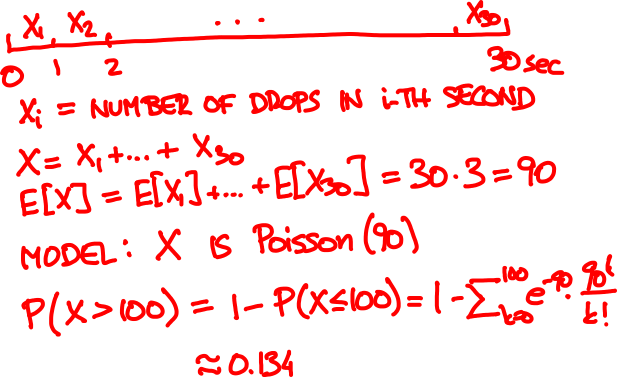 X₁ X₂ ... X₃₀
0 1 2 30 sec
Xᵢ = NUMBER OF DROPS IN i-TH SECOND
X = X₁+...+ X₃₀
E[X] = E[X₁]+...+E[X₃₀] = 30·3 = 90
MODEL: X IS Poisson(90)
P(X>100) = 1 - P(X≤100) = 1 - ∑_{k=0}^{100} e^{-90} · 90^k / k!
≈ 0.134